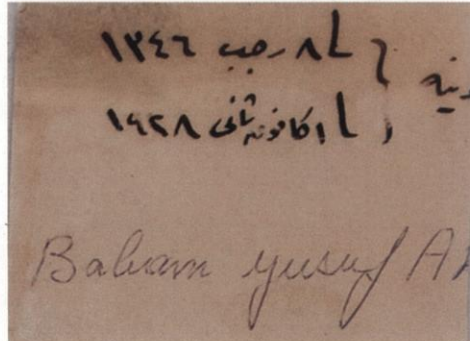 ٨ رجب ١٣٤٦
١ كانون ثانى ١٩٢٨
Babam yusuf